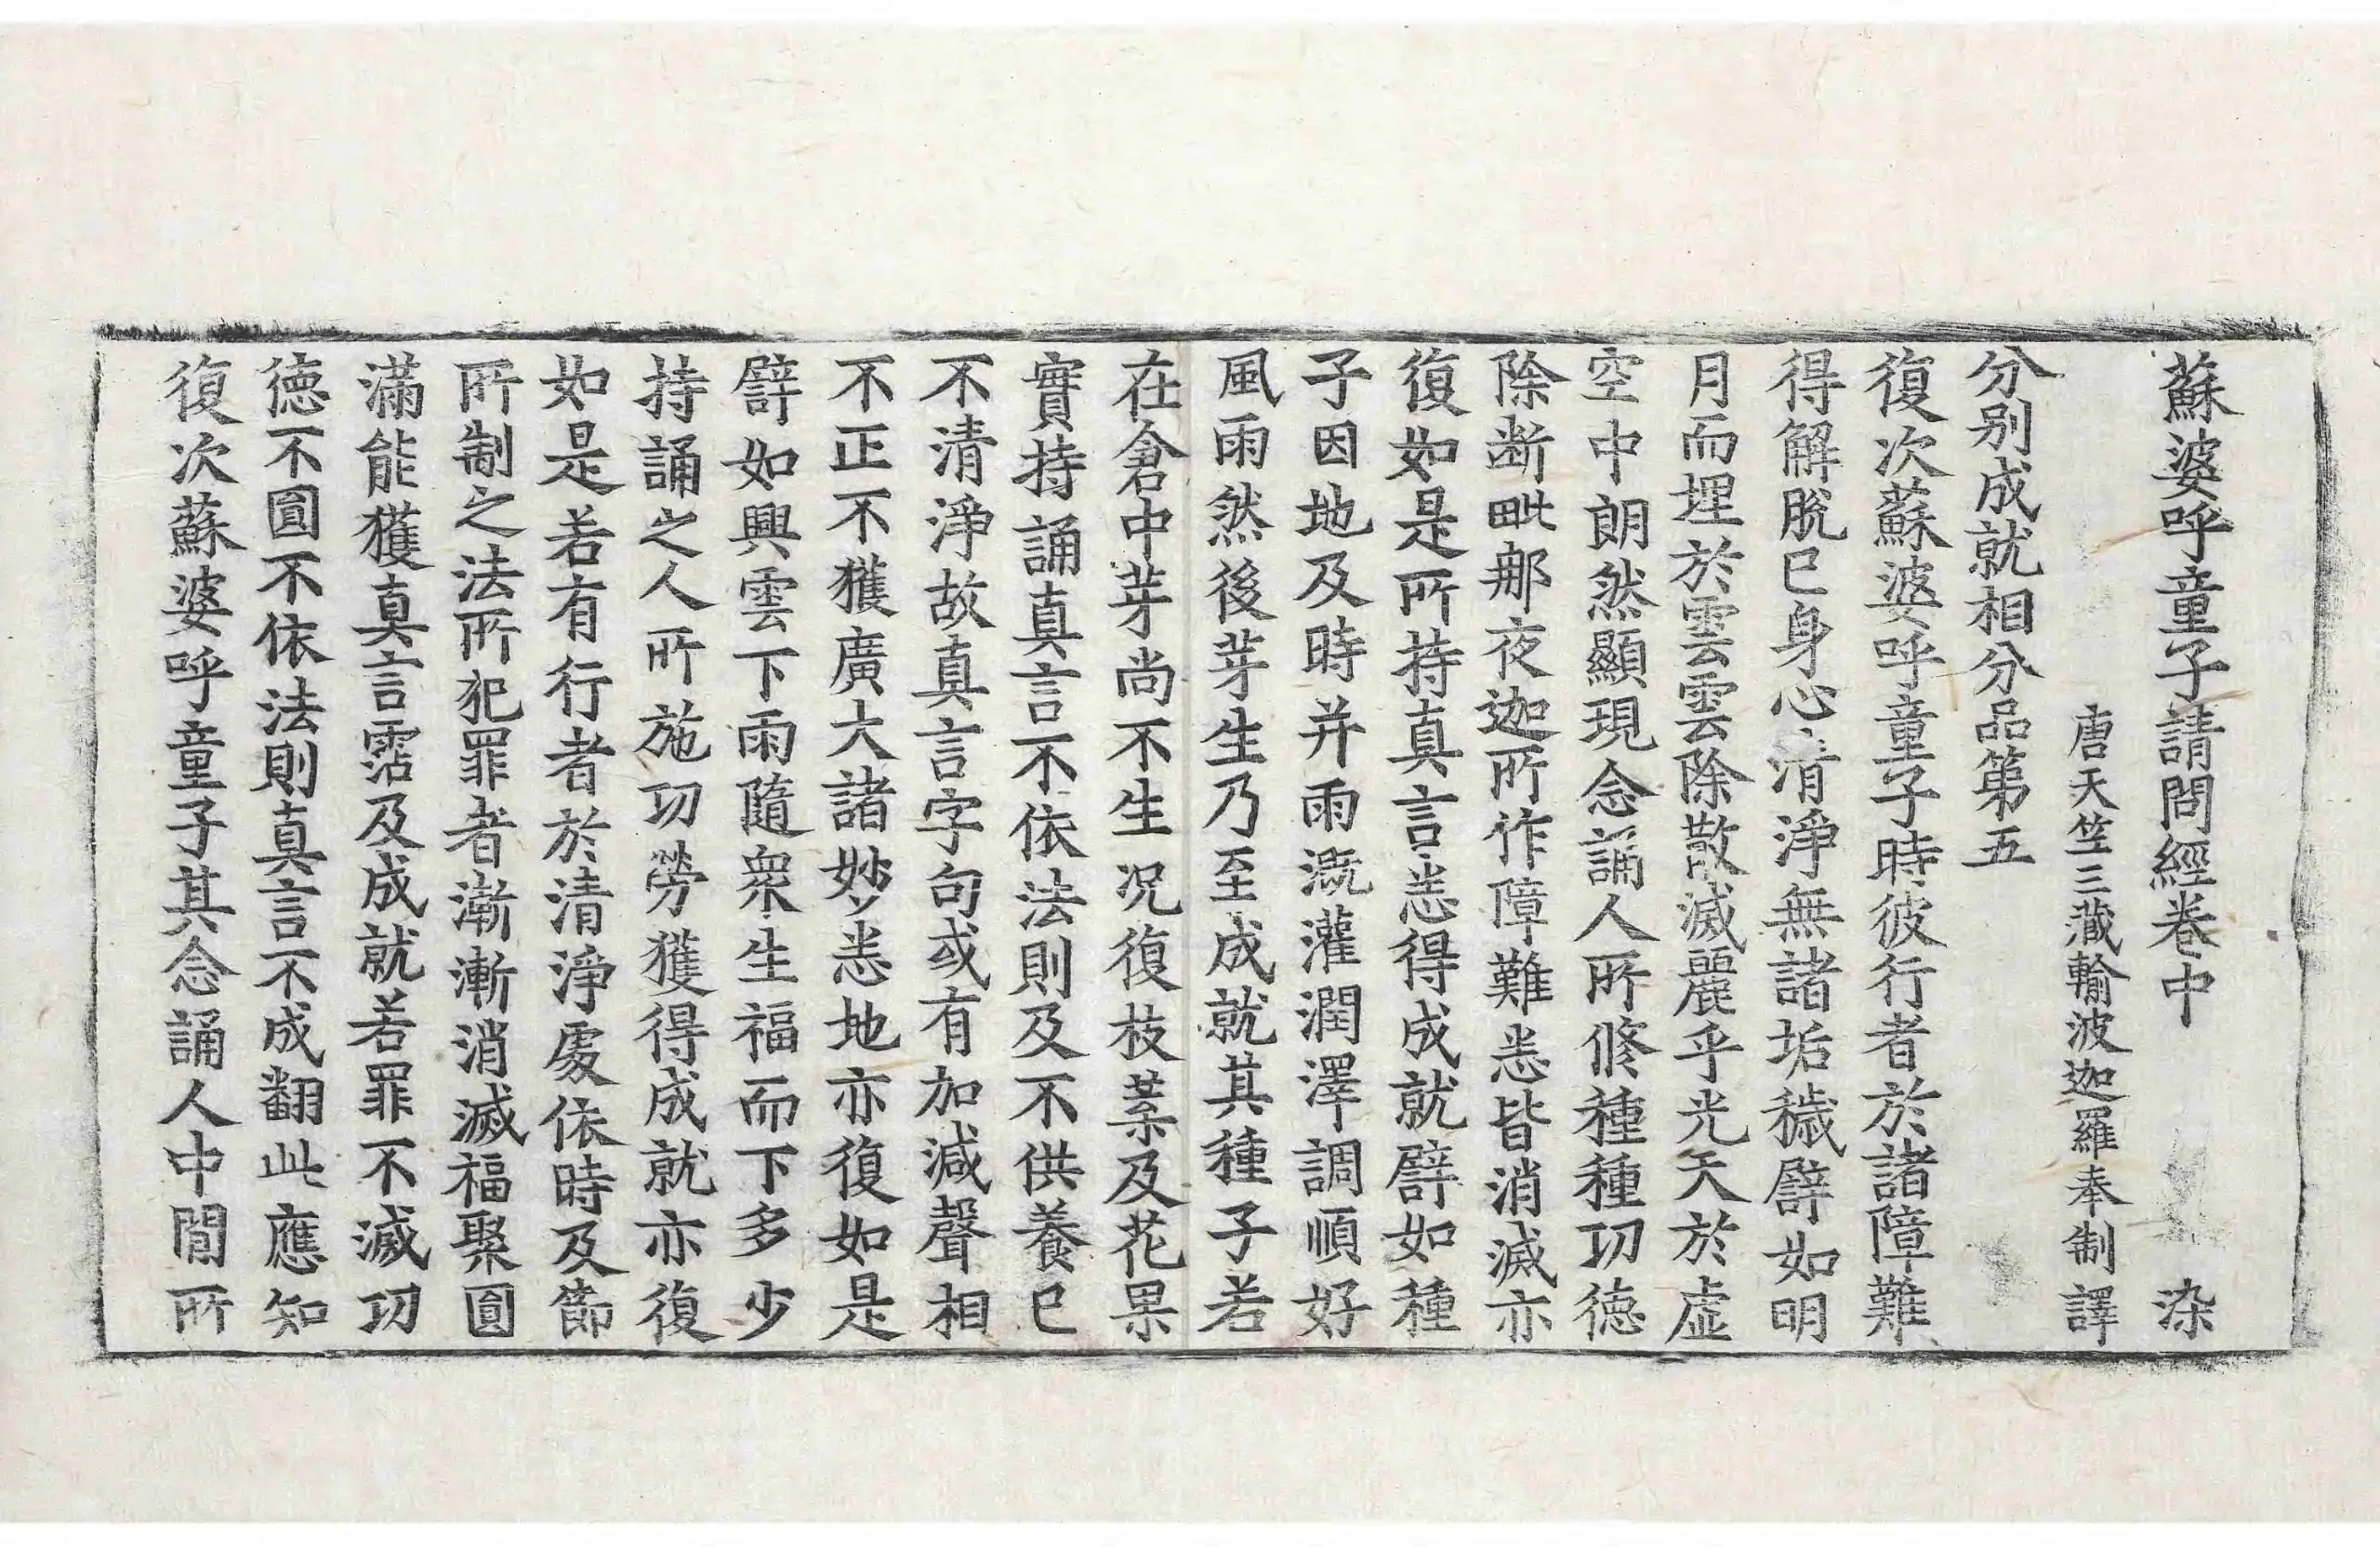 蘇婆呼童子請問經卷中 染
唐天竺三藏輸波迦羅奉制譯
分别成就相分品第五
復次蘇婆呼童子時彼行者於諸障難
得解脫已身心清淨無諸垢穢譬如明
月而埋於雲雲除散滅麗乎光天於虛
空中朗然顯現念誦人所修種種功德
除断毗那夜迦所作障難悉皆消滅亦
復如是所持真言悉得成就譬如種
子因地及時并雨溉灌潤澤調順好
風雨然後芽生乃至成就其種子若
在倉中芽尚不生况復枝葉及花果
實持誦真言不依法則及不供養已
不清淨故真言字句或有加減聲相
不正不獲廣大諸妙悉地亦復如是
譬如興雲下雨隨衆生福而下多少
持誦之人所施功勞獲得成就亦復
如是若有行者於清淨處依時及節
所制之法所犯罪者漸漸消滅福聚圓
滿能獲真言霑及成就若罪不滅功
德不圓不依法則真言不成翻此應知
復次蘇婆呼童子其念誦人中間所